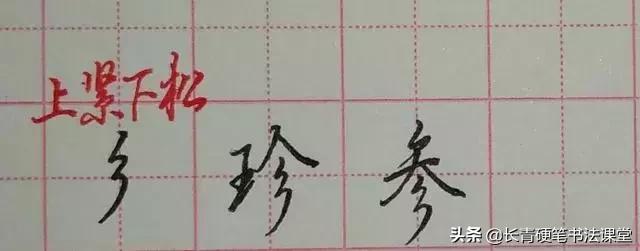 上紧下松
彡 珍 参
头条 @长青硬笔书法课堂